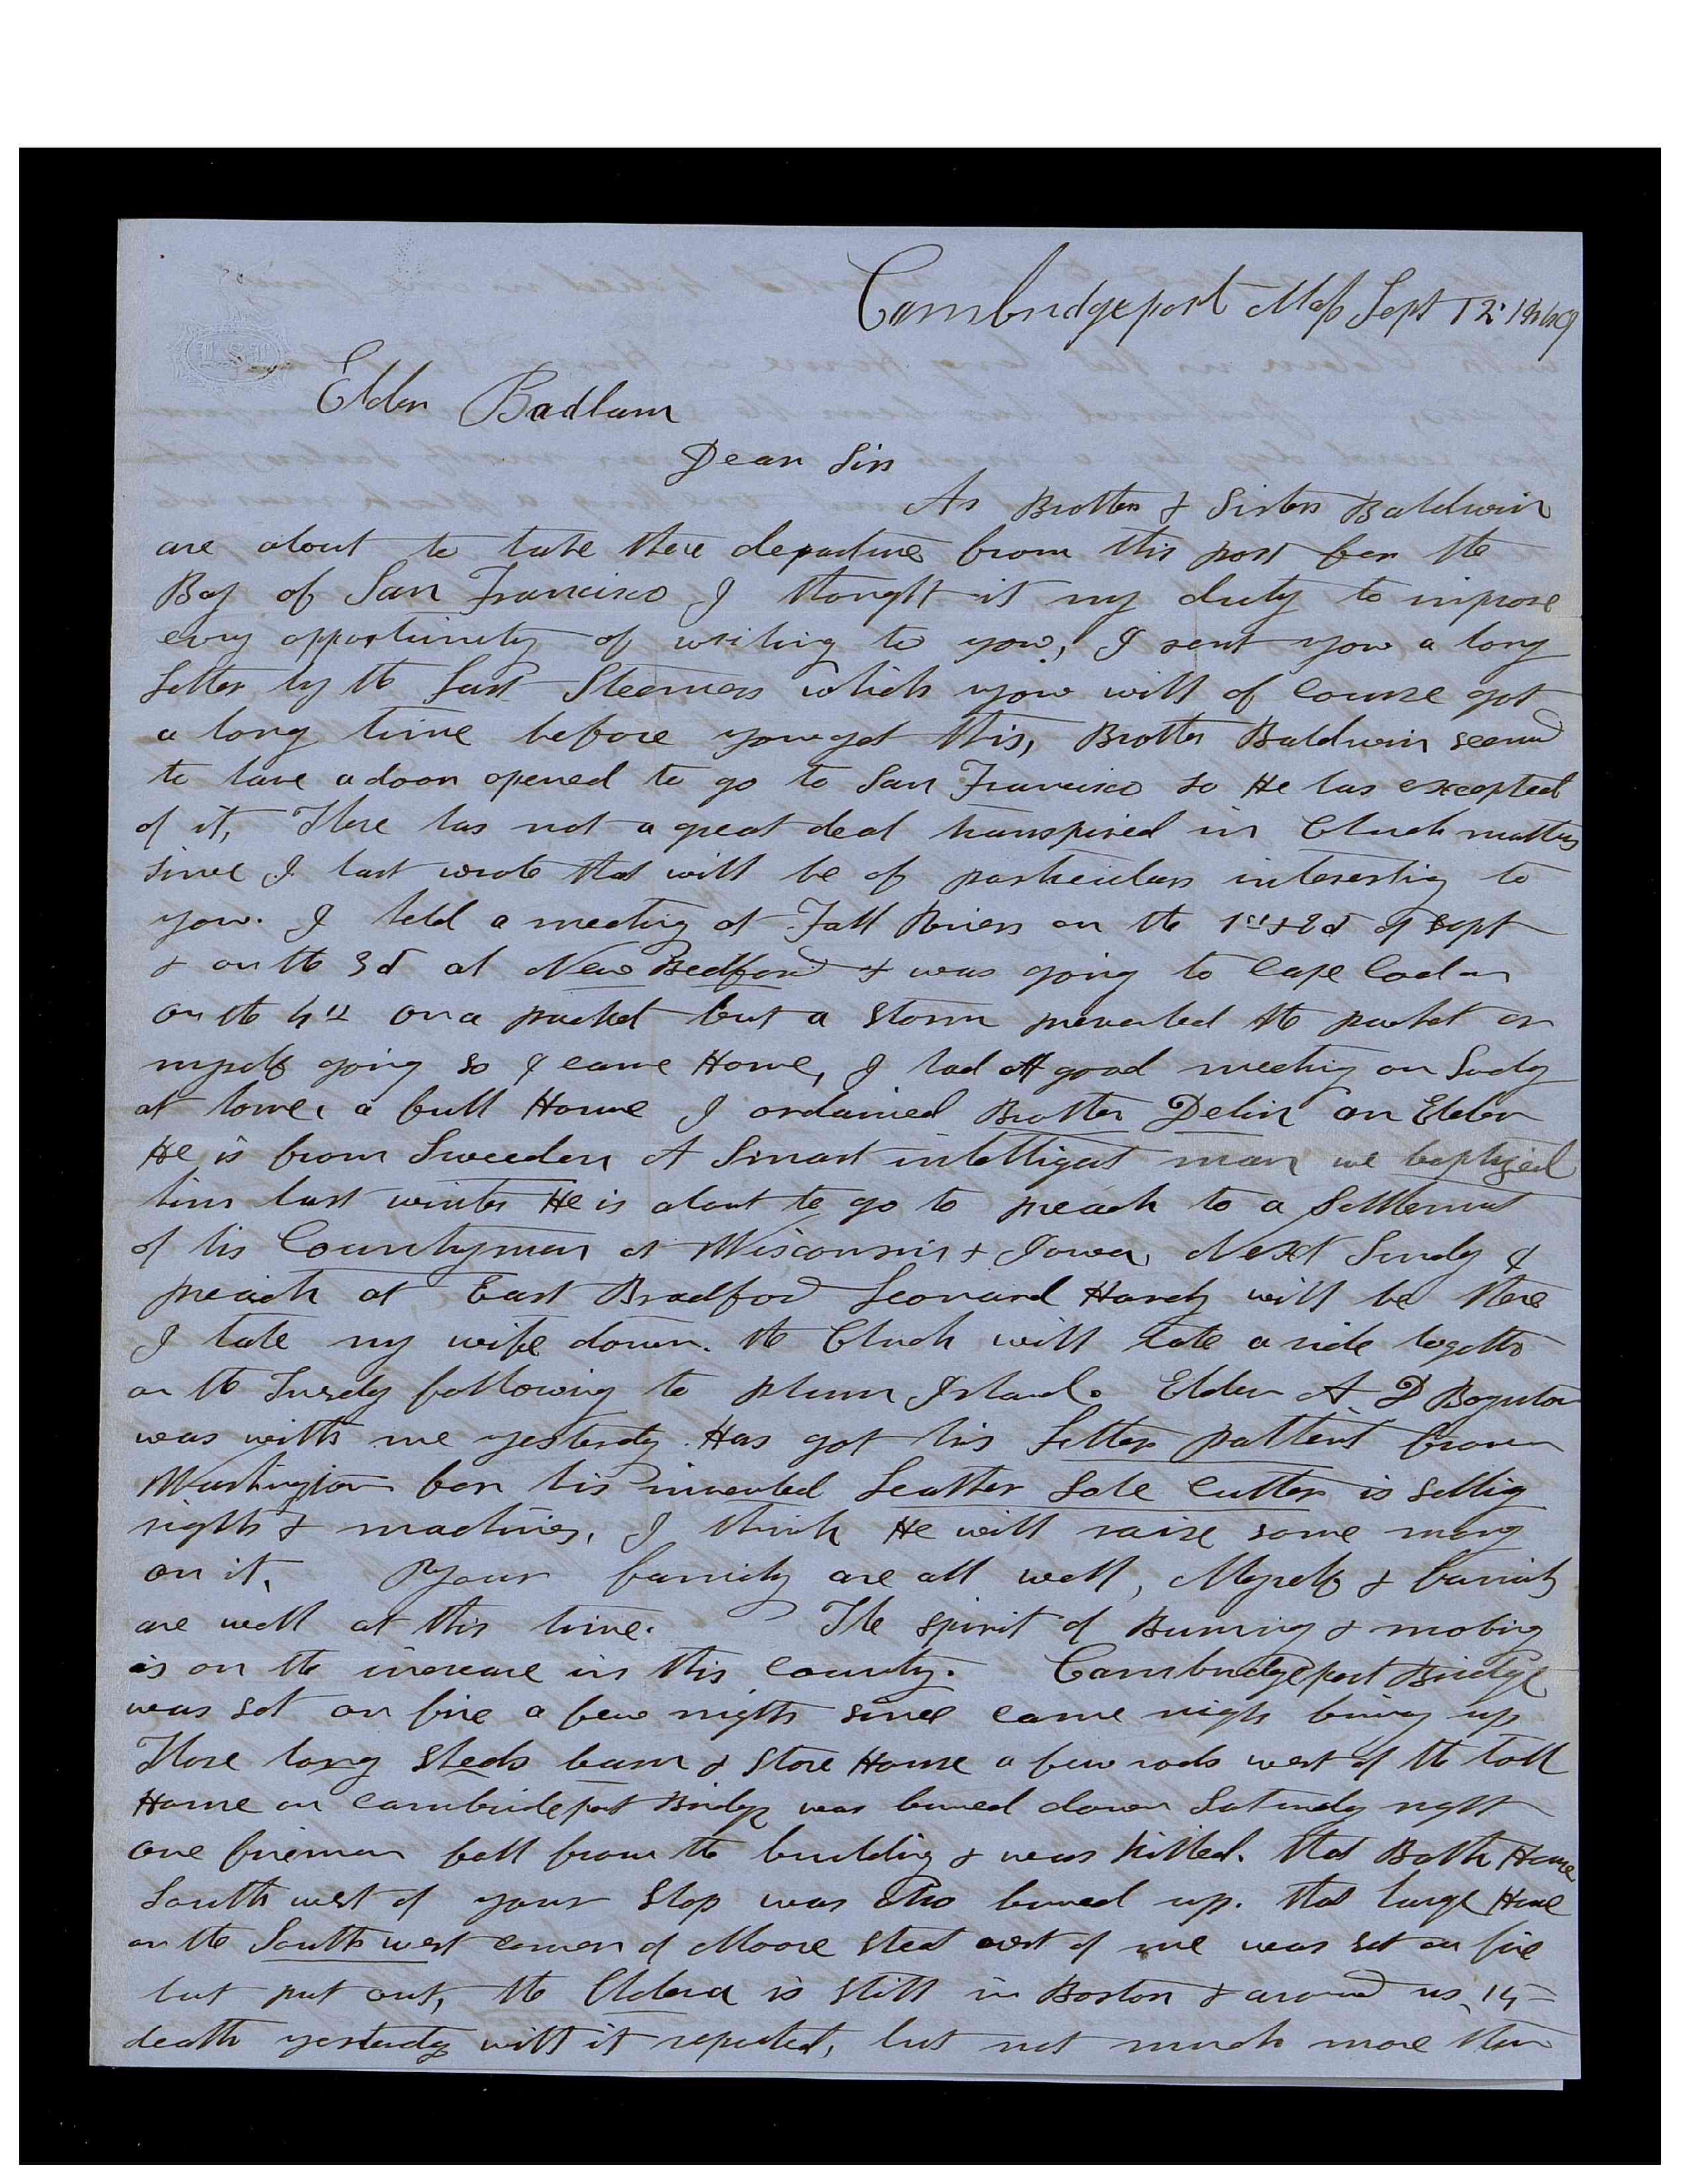 L.S.L
Cambridgeport Mass Sept 12 1849
Elder Badlam
Dear Sir
As Brother & Sister Baldwin
are about to take there departure from this port for the
Bay of San Francisco I thought it my duty to improve
evry opportunity of writing to you, I sent you a long
Letter by the Last Steemer which you will of course get
a long time before you get this, Brother Baldwin seemed
to have a door opened to go to San Francisco so He has excepted
of it, There has not a great deal transpired in Church matters
since I last wrote that will be of particular interesting to
you. I held a meeting at Fall River on the 1st & 2d of Sept
& on the 3d at New Bedford & was going to Cape Cod
on the 4th on a packet but a storm prevented the packet or
myself going so I came Home, I had A good meeting on Sudy
at home, a full House I ordained Brother Delin an Elder
He is from Sweeden A Smart intelligent man we baptized
him last winter He is about to go to preach to a Settlement
of his Countrymen at Wisconsin & Iowa, Next Sundy I
preach at East Bradford Leonard Hardy will be there
I take my wife down. the Church will take a ride together
on the Tusedy following to plum Island. Elder A D Boynton
was with me yesterdy. Has got his Letter pattent from
Washington for his invented Leather Sole Cutter is selling
rights & machines, I think He will raise some mony
on it, Your family are all well, Myself & family
are well at this time. The spirit of Burning & mobing
is on the increase in this county. Cambridgeport Bridge
was set on fire a few nights since came nigh burning up
Those long Sheds barn & Store House a few rods west of the toll
House on cambridgeport Bridge was burned down Saturdy night
one fireman fell from the building & was killed. that Bath House
South west of your Shop was also burned up. that large House
on the South west corner of Moore Street west of me was set on fire
but put out, the Cholera is still in Boston & around us, 14
death yesterdy with it reported, but not much more than